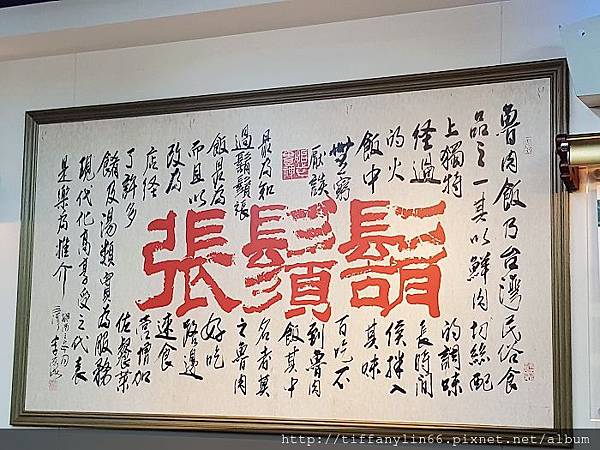 魯肉飯乃台灣民俗食
品之一其以鮮肉切絲配
上獨特的調味
經過長時間
的火候拌入
飯中其味
無窮百吃不
厭談到魯肉
飯其中
最為知名者莫
過鬍鬚張之魯肉
飯最為好吃
而且以路邊
改為速食
店經營增加
了許多佐餐菜
餚及湯類實為服務
現代化高享受之代表
是樂為推介
鬍鬚張
http://tiffanylin66.pixnet.net/album